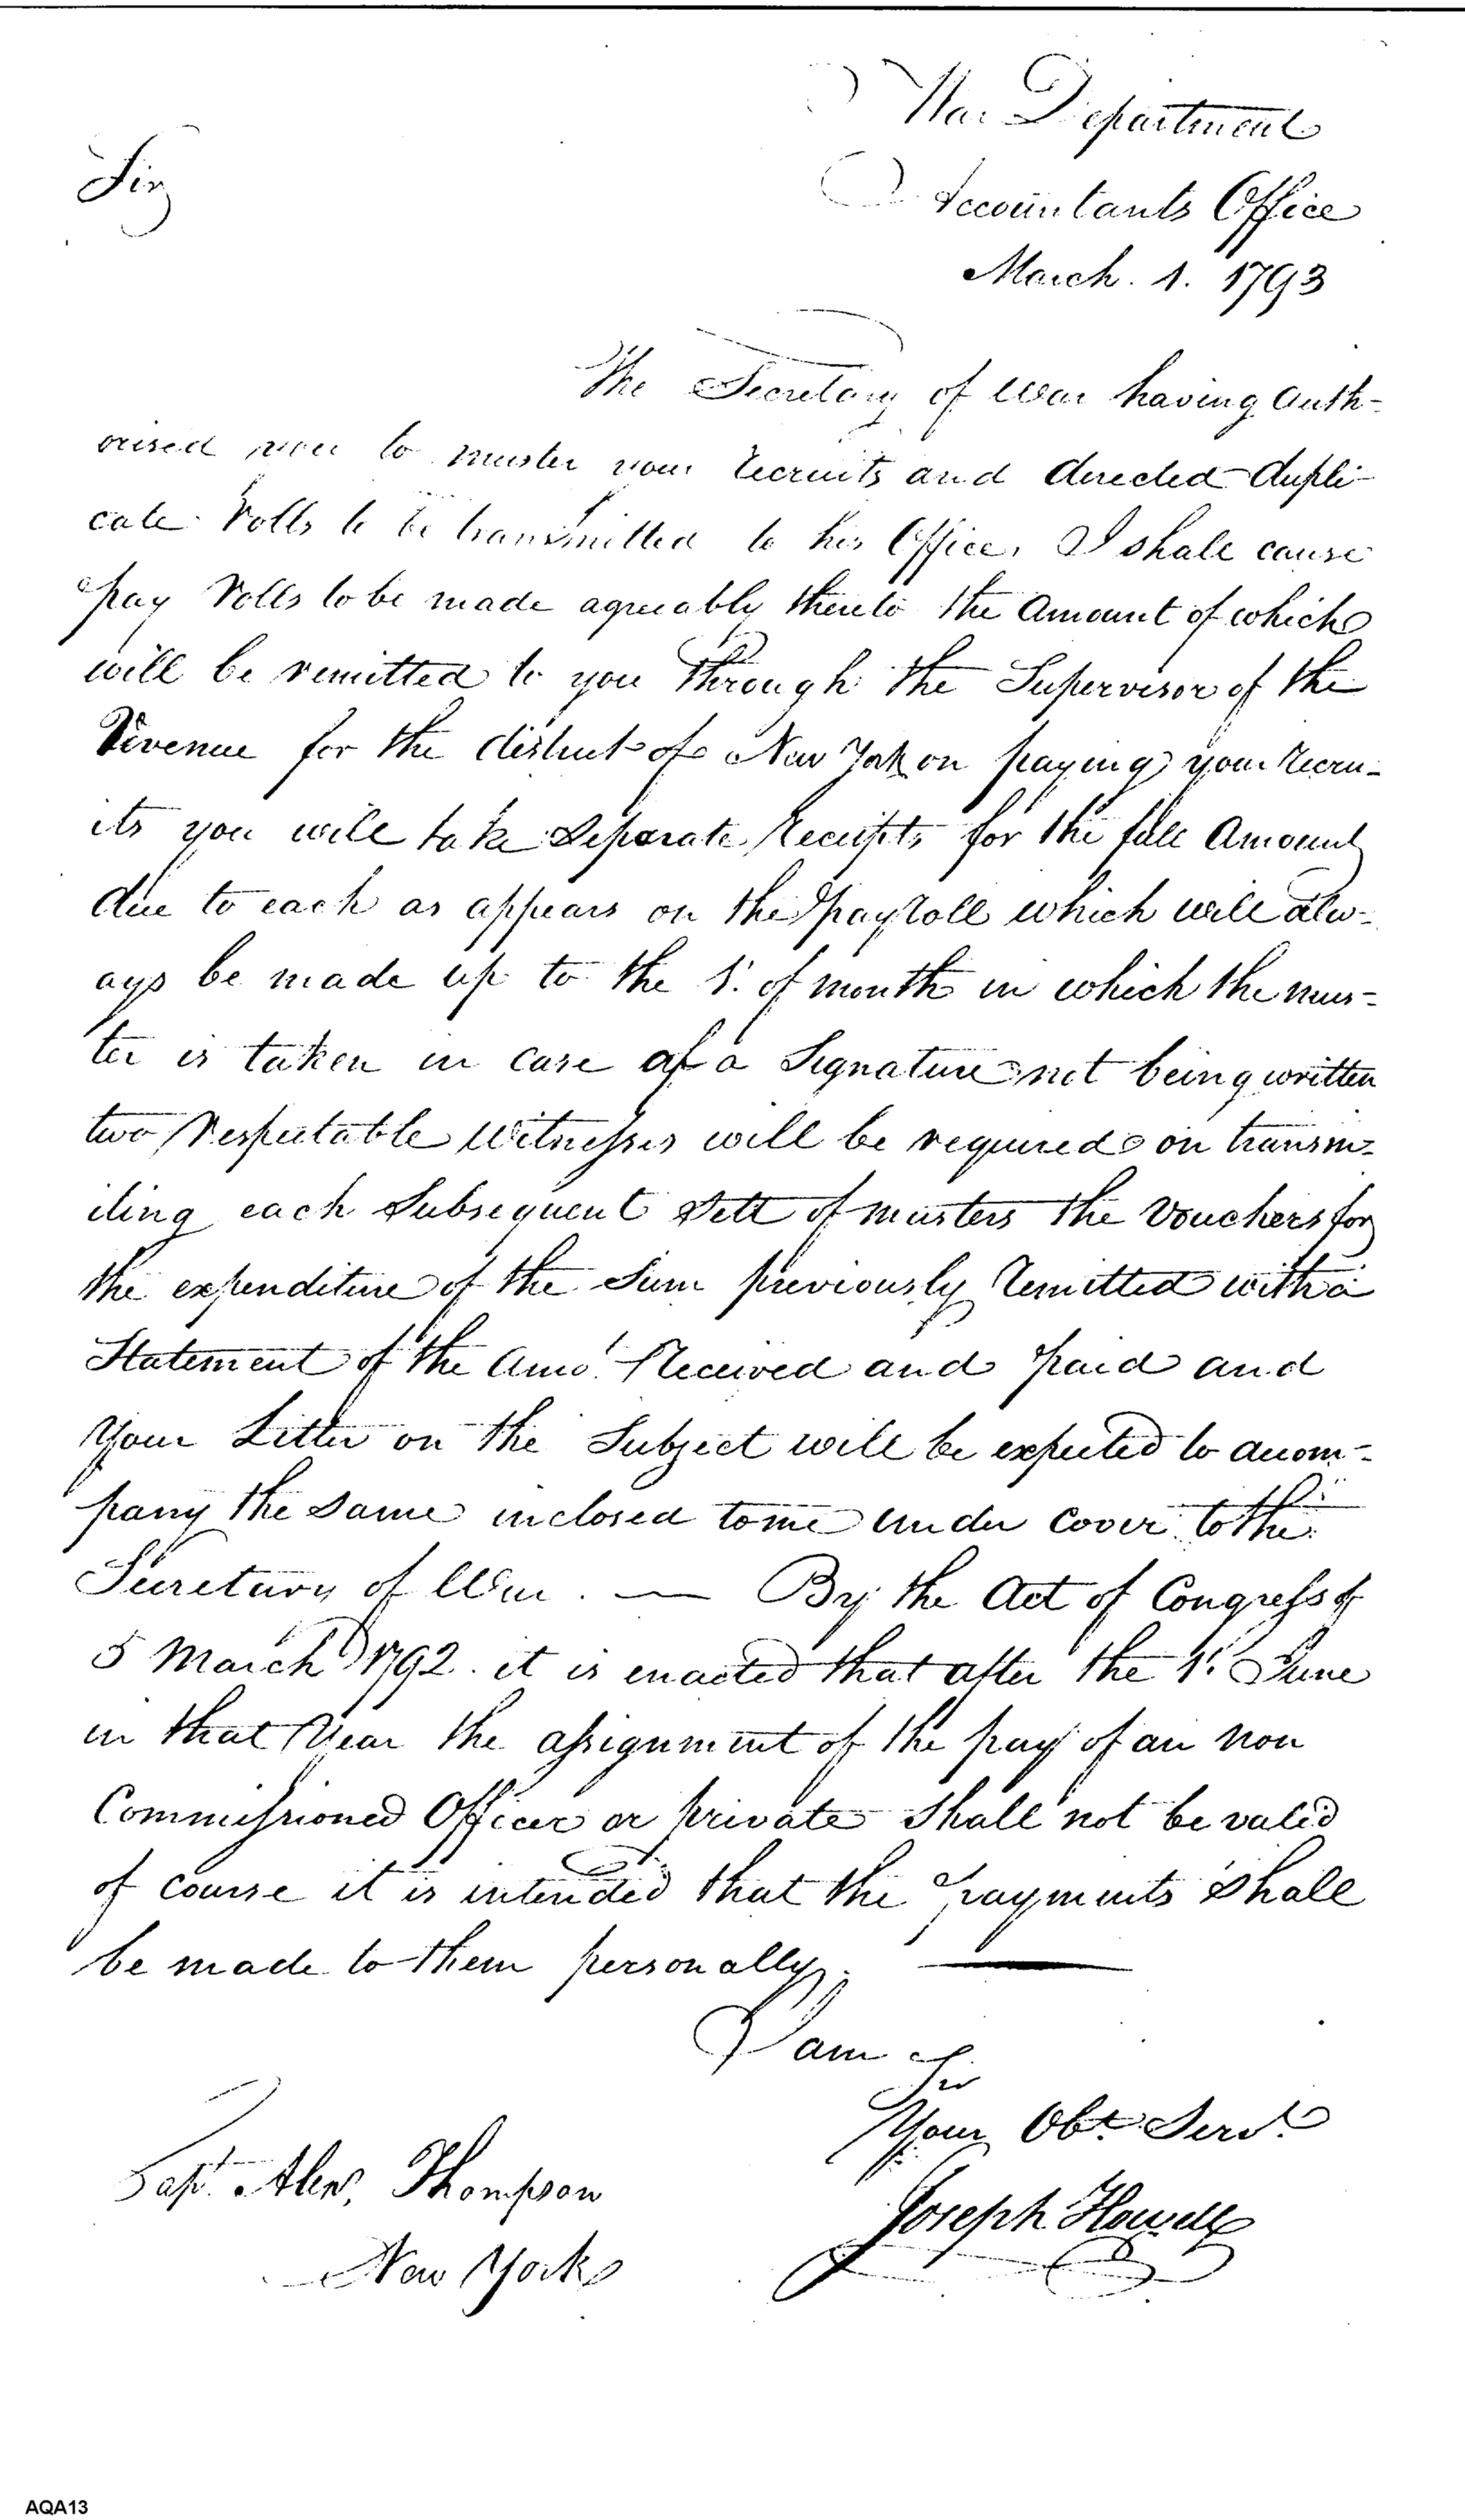 War Department
Sir
Accountants Office
March. 1. 1793
The Secretary of War having auth-
orised you to muster your recruits and directed dupli-
cate rolls to be transmitted to his Office, I shall cause
pay rolls to be made agreeably thereto the amount of which
will be remitted to you through the Supervisor of the
Revenue for the district of New York on paying your recru-
its you will take separate receipts for the full amount
due to each as appears on the pay roll which will alw-
ays be made up to the 1t. of month in which the mus-
ter is taken in case of a Signature not being written
two respectable witnesses will be required on transm-
iting each subsequent sett of musters the Vouchers for
the expenditure of the sum previously remitted with a
Statement of the amot. received and paid and
your Letter on the Subject will be expected to accom-
pany the same inclosed to me under cover to the
Secretary of War. — By the Act of Congress of
5 March 1792. it is enacted that after the 1t. June
in that Year the assignment of the pay of an non
Commissioned Officer or private shall not be valid
of course it is intended that the payments shall
be made to them personally.
I am Sir
Your Obt. Servt.
Capt. Alexr. Thompson
Joseph Howell
New York
AQA13